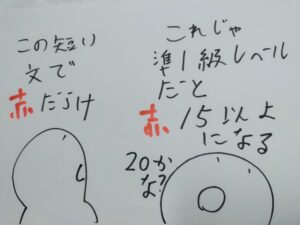 この短い
文で
赤だらけ
これじゃ
準1級レベル
だと
赤15以上
になる
20か
な?